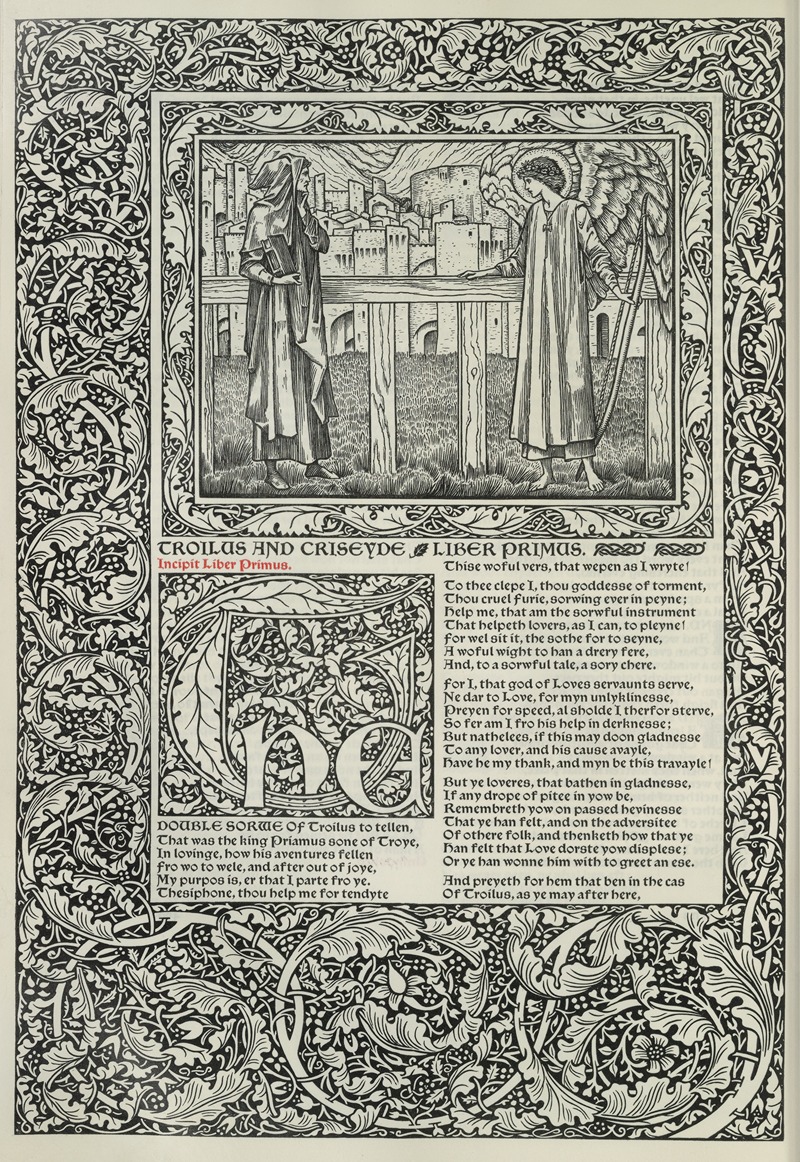 TROILUS AND CRISEYDE LIBER PRIMUS.
Incipit Liber Primus.
The
DOUBLE SORWE Of Troilus to tellen,
That was the king Priamus sone of Troye,
In lovinge, how his aventures fellen
Fro wo to wele, and after out of joye,
My purpos is, er that I parte fro ye.
Thesiphone, thou help me for tendyte
Thise woful vers, that wepen as I wryte!
To thee clepe I, thou goddesse of torment,
Thou cruel Furie, sorwing ever in peyne;
Help me, that am the sorwful instrument
That helpeth lovers, as I can, to pleyne!
For wel sit it, the sothe for to seyne,
A woful wight to han a drery fere,
And, to a sorwful tale, a sory chere.
For I, that god of Loves servaunts serve,
Ne dar to Love, for myn unlyklinesse,
Preyen for speed, al sholde I therfor sterve,
So fer am I fro his help in derknesse;
But nathelees, if this may doon gladnesse
To any lover, and his cause avayle,
Have he my thank, and myn be this travayle!
But ye loveres, that bathen in gladnesse,
If any drope of pitee in yow be,
Remembreth yow on passed hevinesse
That ye han felt, and on the adversitee
Of othere folk, and thenketh how that ye
Han felt that Love dorste yow displese;
Or ye han wonne him with to greet an ese.
And preyeth for hem that ben in the cas
Of Troilus, as ye may after here,